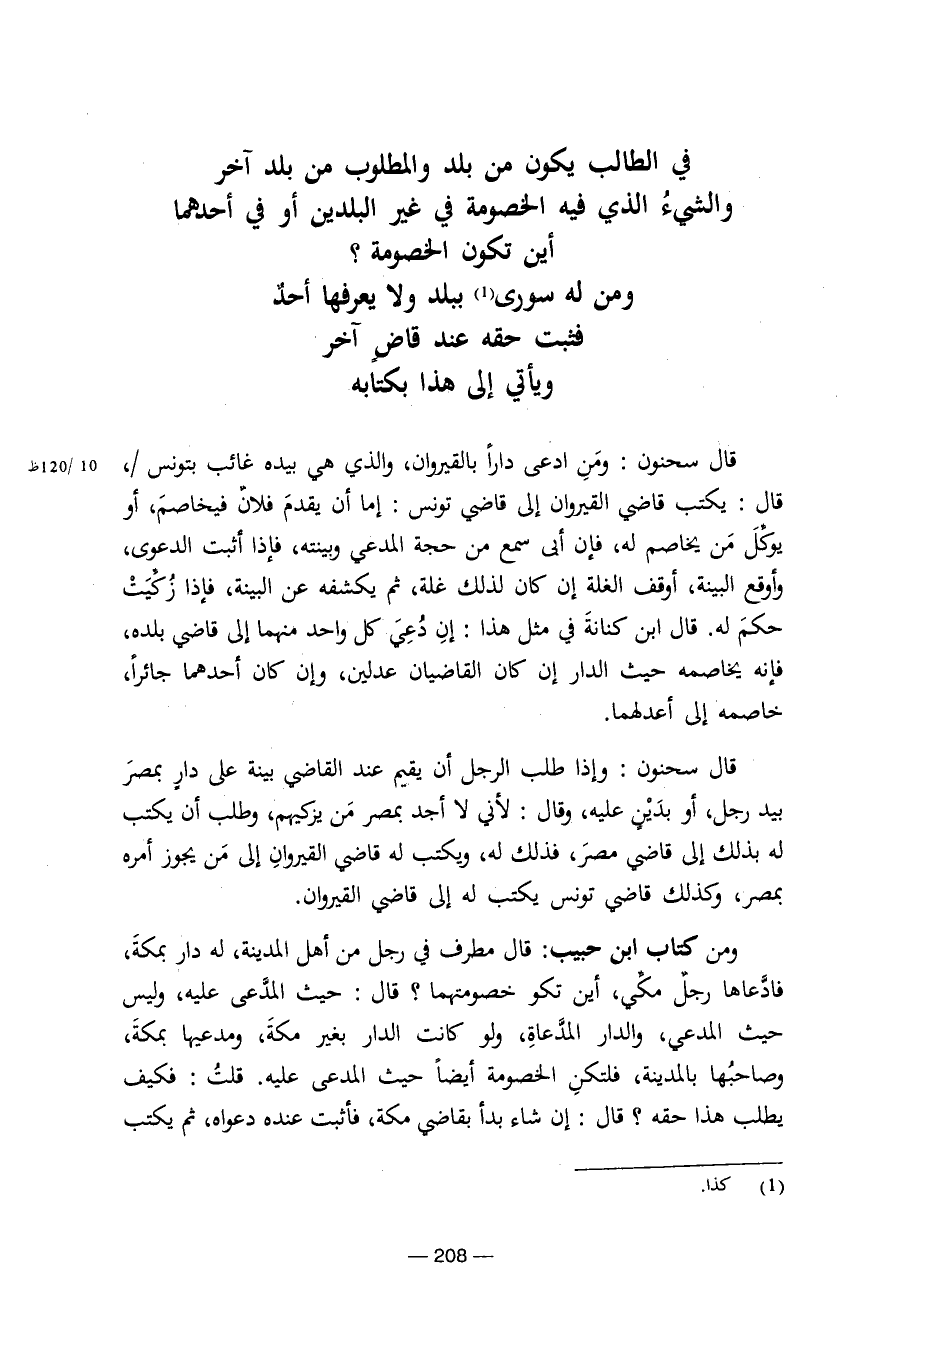 في الطالب يكون من بلد والمطلوب من بلد آخر
والشيءُ الذي فيه الخصومة في غير البلدين أو في أحدهما
أين تكون الخصومة ؟
ومن له سورى(1) ببلد ولا يعرفها أحدٌ
فثبت حقه عند قاضٍ آخر
ويأتي إلى هذا بكتابه
قال سحنون : ومَنِ ادعى داراً بالقيروان، والذي هي بيده غائب بتونس /، 10 /120ظ
قال : يكتب قاضي القيروان إلى قاضي تونس : إما أن يقدمَ فلانٌ فيخاصمَ، أو
يوكِّلَ مَن يخاصم له، فإن أبى سمع من حجة المدعي وبينته، فإذا أثبت الدعوى،
وأوقع البينة، أوقف الغلة إن كان لذلك غلة، ثم يكشفه عن البينة، فإذا زُكِّيَتْ
حكمَ له. قال ابن كنانةَ في مثل هذا : إنِ دُعِيَ كل واحد منهما إلى قاضي بلده،
فإنه يخاصمه حيث الدار إن كان القاضيان عدلين، وإن كان أحدهما جائراً،
خاصمه إلى أعدلهما.
قال سحنون : وإذا طلب الرجل أن يقيم عند القاضي بينة على دارٍ بمصرَ
بيد رجل، أو بدَيْنٍ عليه، وقال : لأني لا أجد بمصر مَن يزكيهم، وطلب أن يكتب
له بذلك إلى قاضي مصرَ، فذلك له، ويكتب له قاضي القيروانِ إلى مَن يجوز أمره
بمصر، وكذلك قاضي تونس يكتب له إلى قاضي القيروان.
ومن كتاب ابن حبيب: قال مطرف في رجل من أهل المدينة، له دار بمكةَ،
فادَّعاها رجلٌ مكّي، أين تكو خصومتهما ؟ قال : حيث المدَّعى عليه، وليس
حيث المدعي، والدار المدَّعاةِ، ولو كانت الدار بغير مكةَ، ومدعيها بمكةَ،
وصاحبُها بالمدينة، فلتكنِ الخصومة أيضاً حيث المدعى عليه. قلتُ : فكيف
يطلب هذا حقه ؟ قال : إن شاء بدأ بقاضي مكة، فأثبت عنده دعواه، ثم يكتب
(1) كذا.
— 208 —